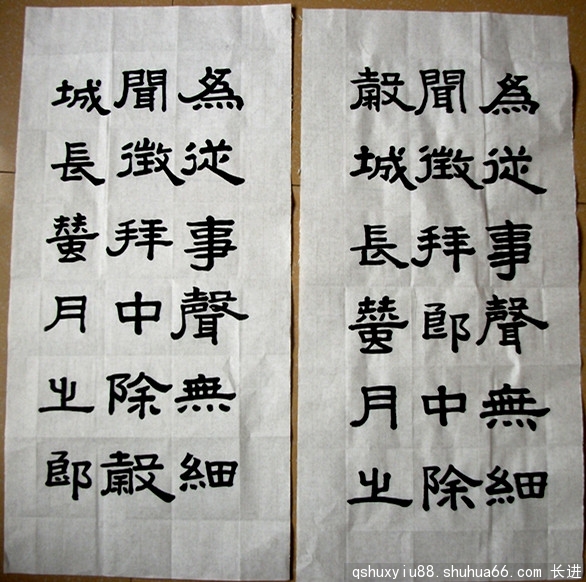 為從事聲無細
聞徵拜郎中除
穀城長蠶月之
為從事聲無細
聞徵拜中除穀
城長蠶月之郎
qshuxyiu88.shuhua66.com 长进